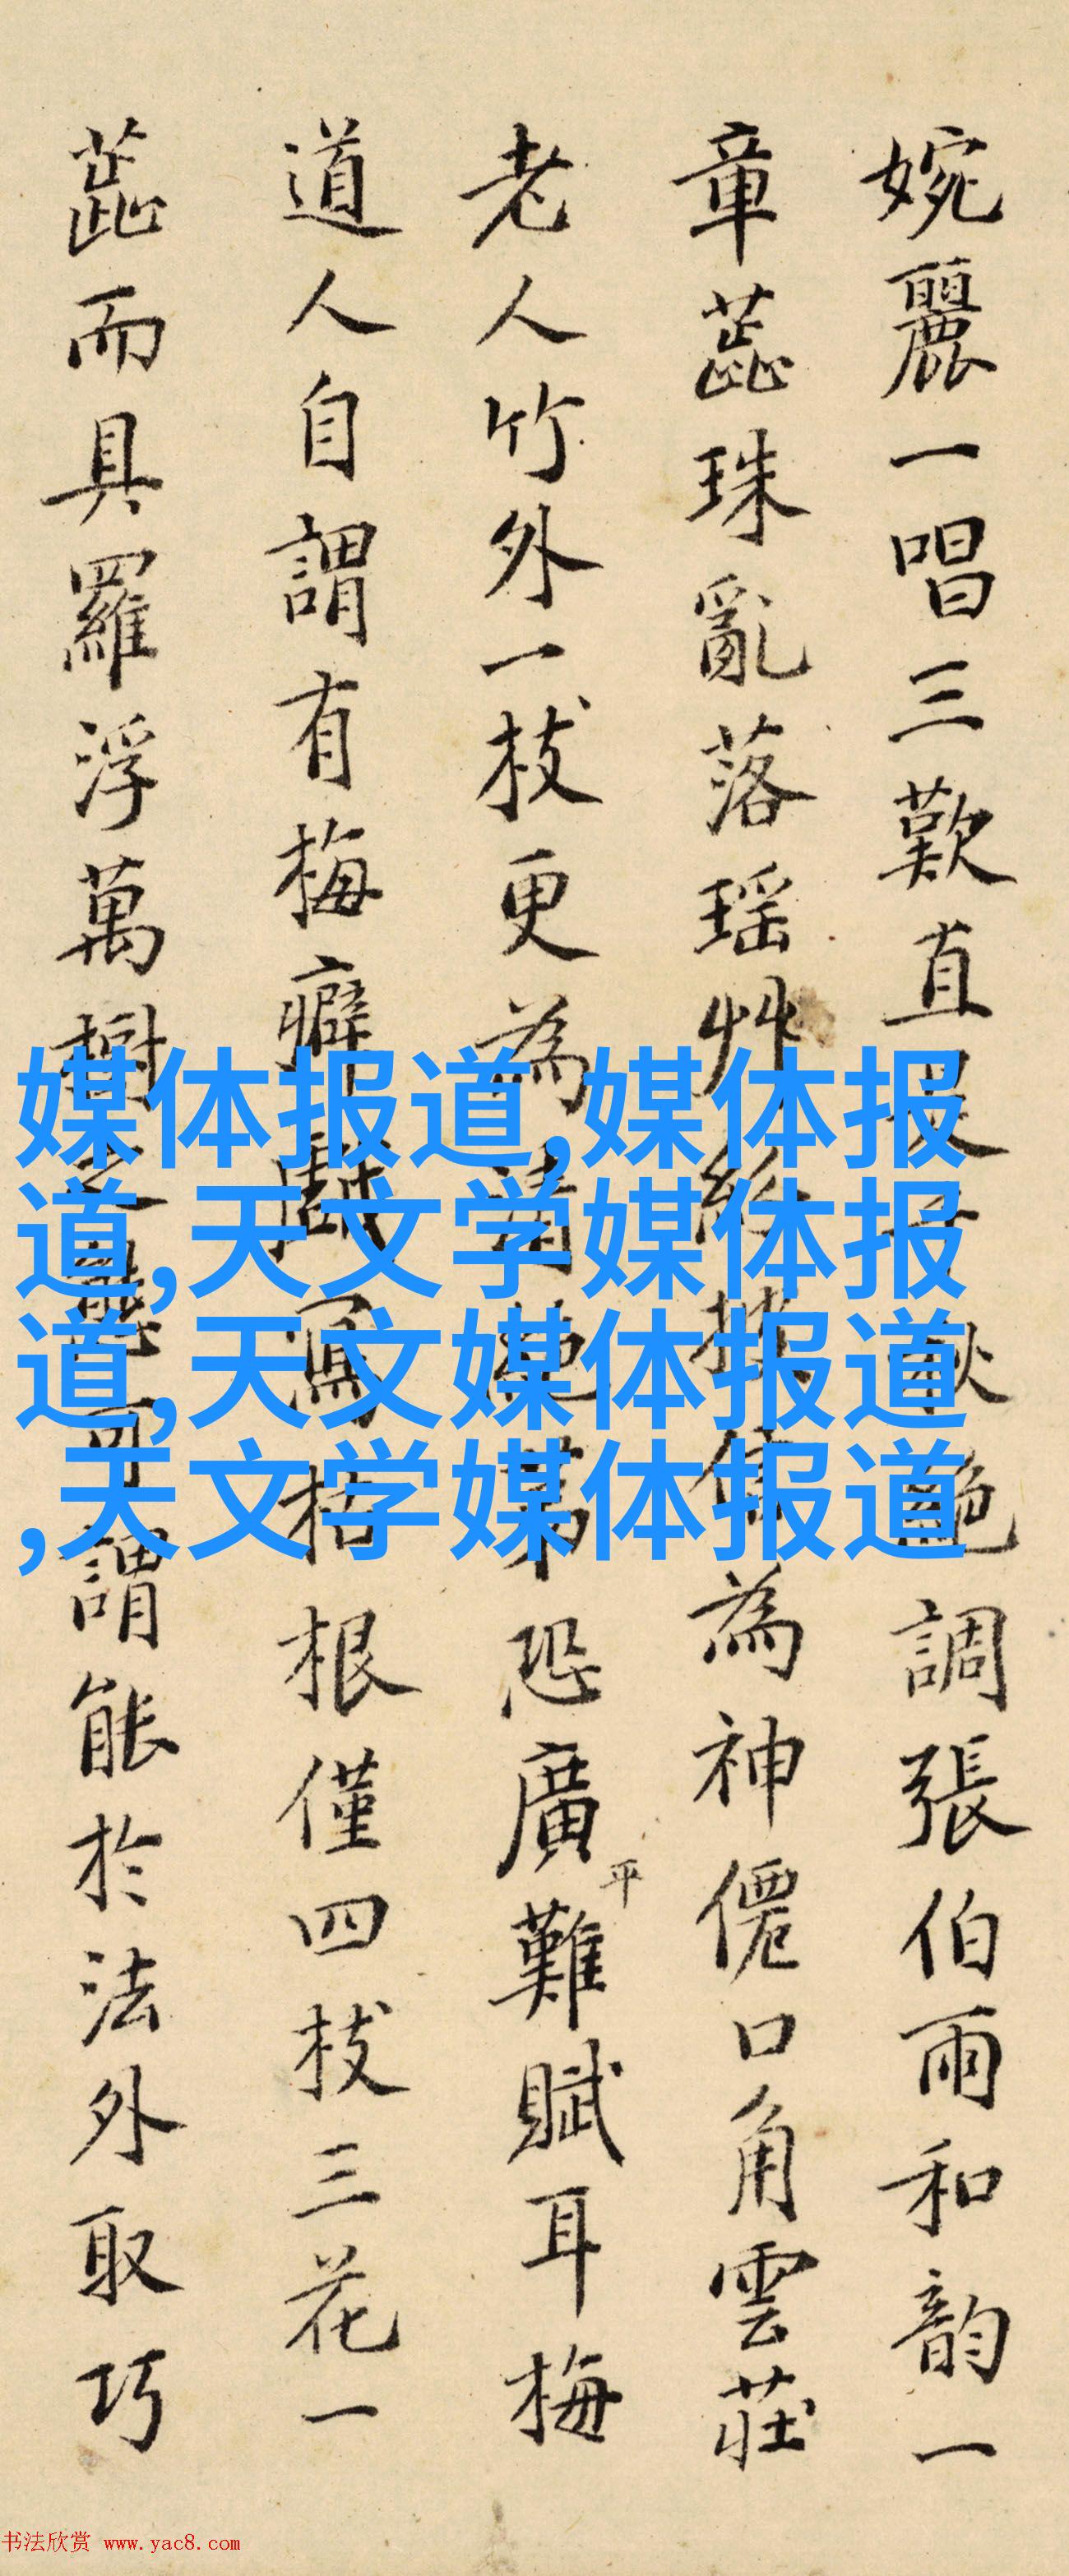 婉麗一唱三歎直是
絶調張伯雨和韵一
章蕋珠亂落瑶艸紛
為神僊口角雲莊
老人竹外一枝更為清
恐廣平難賦耳梅
道人自謂有梅癖戲寫
枯根僅四枝三花一
蕋而具羅浮萬樹之態可
謂能於法外取巧
媒体报道,媒体报
道,天文学媒体报
道,天文媒体报道
,天文学媒体报道
书法欣赏 www.yac8.com